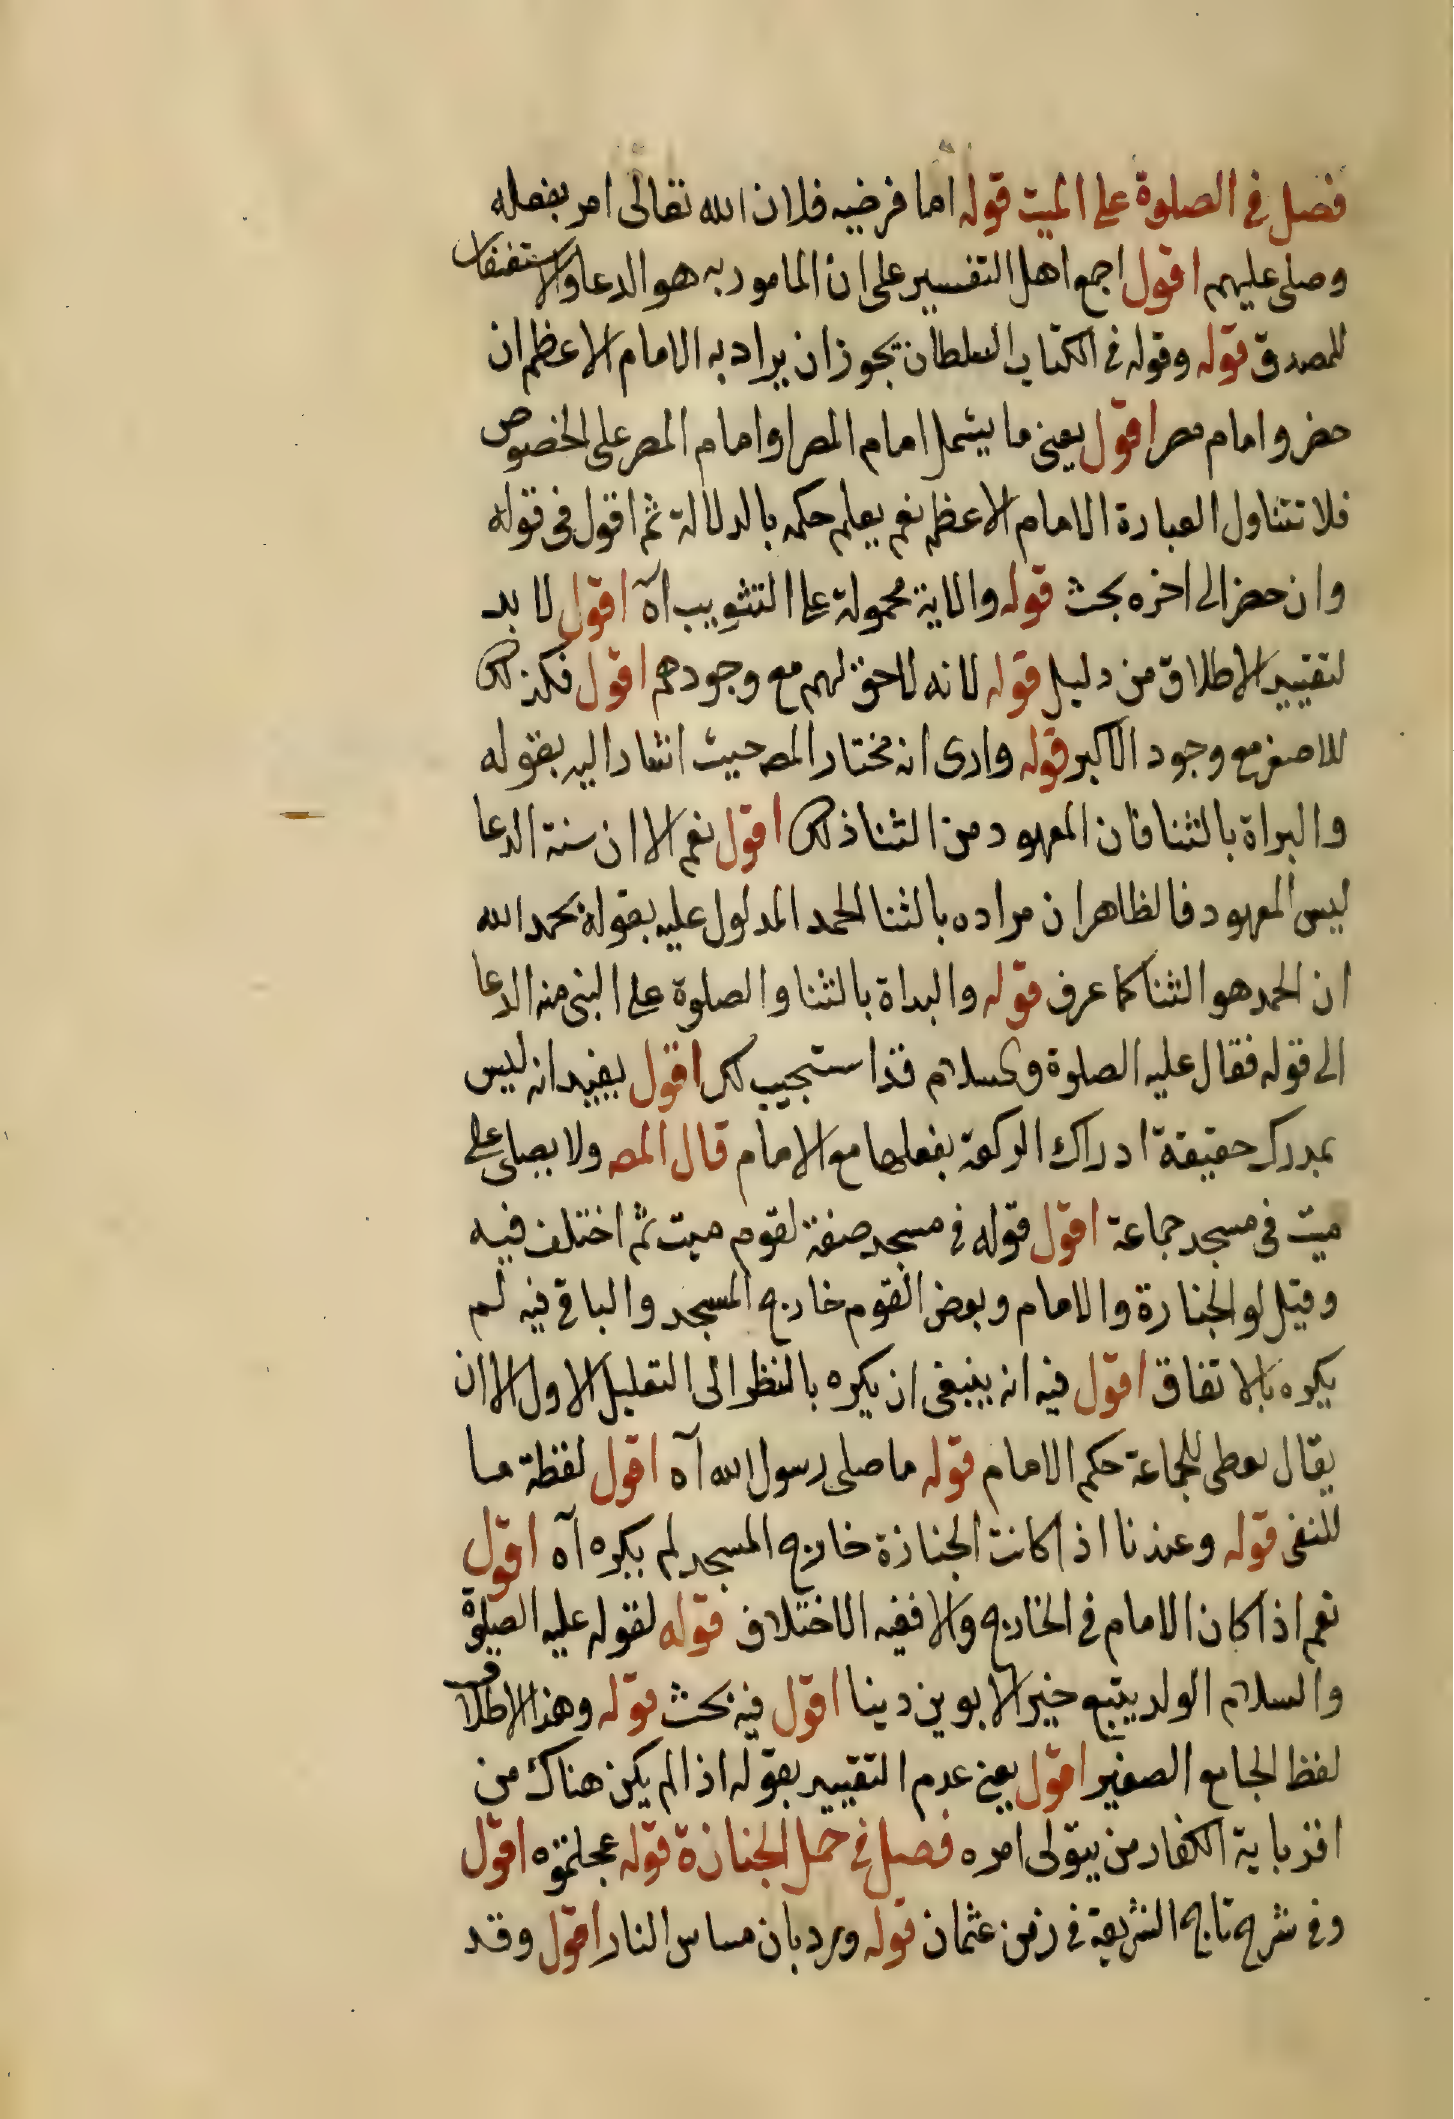 فصل في الصلوة على الميت قوله اما فرضيه فلان الله تعالى امر بفعله
وصلى عليهم اقول اجمع اهل التفسير على ان المامور به هو الدعا والاستغفار
للمصدق قوله وقوله في الكتاب السلطان يجوز ان يراد به الامام الاعظم ان
حضر وامام مصر اقول يعني ما يشمل امام المصر او امام المصر على الخصوص
فلا تتناول العبارة الامام الاعظم نعم يعلم حكمه بالدلالة ثم اقول في قوله
وان حضر الى اخره بحث قوله والاية محمولة على التثويب آه اقول لا بد
لتقييد الاطلاق من دليل قوله لانه لاحق لهم مع وجودهم اقول فكذلك
للاصغر مع وجود الاكبر قوله وارى انه مختار المص حيث اشار اليه بقوله
والبراة بالثنا فان المعهود من الثنا ذلك اقول نعم الا ان سنة الدعا
ليس المعهود فالظاهر ان مراده بالثنا الحمد المدلول عليه بقوله يحمد الله
ان الحمد هو الثنا كما عرف قوله والبداة بالثنا والصلوة على النبي منه الدعا
الى قوله فقال عليه الصلوة والسلام قد استجيب لك اقول يفيد انه ليس
بمدرك حقيقة ادراك الركعة بفعلها مع الامام قال المص ولا يصلى على
ميت في مسجد جماعة اقول قوله في مسجد صفة لقوم ميت ثم اختلف فيه
وقيل لو الجنازة والامام وبعض القوم خارج المسجد والباقي فيه لم
يكره بالاتفاق اقول فيه انه ينبغي ان يكره بالنظر الى التعليل الاول الا ان
يقال يعطى للجماعة حكم الامام قوله ما صلى رسول الله آه اقول لفظة ما
للنفي قوله وعندنا اذا كانت الجنازة خارج المسجد لم يكره آه اقول
نعم اذا كان الامام في الخارج والا ففيه الاختلاف قوله لقوله عليه الصلوة
والسلام الولد يتبع خير الابوين دينا اقول فيه بحث قوله وهذا الاطلاق
لفظ الجامع الصغير اقول يعني عدم التقييد بقوله اذا لم يكن هناك من
اقربايه الكفار من يتولى امره فصل في حمل الجنازة قوله عجلتموه اقول
وفي شرح تاج الشريعة في زمن عثمان قوله ورد بان مساس النار اقول وقد